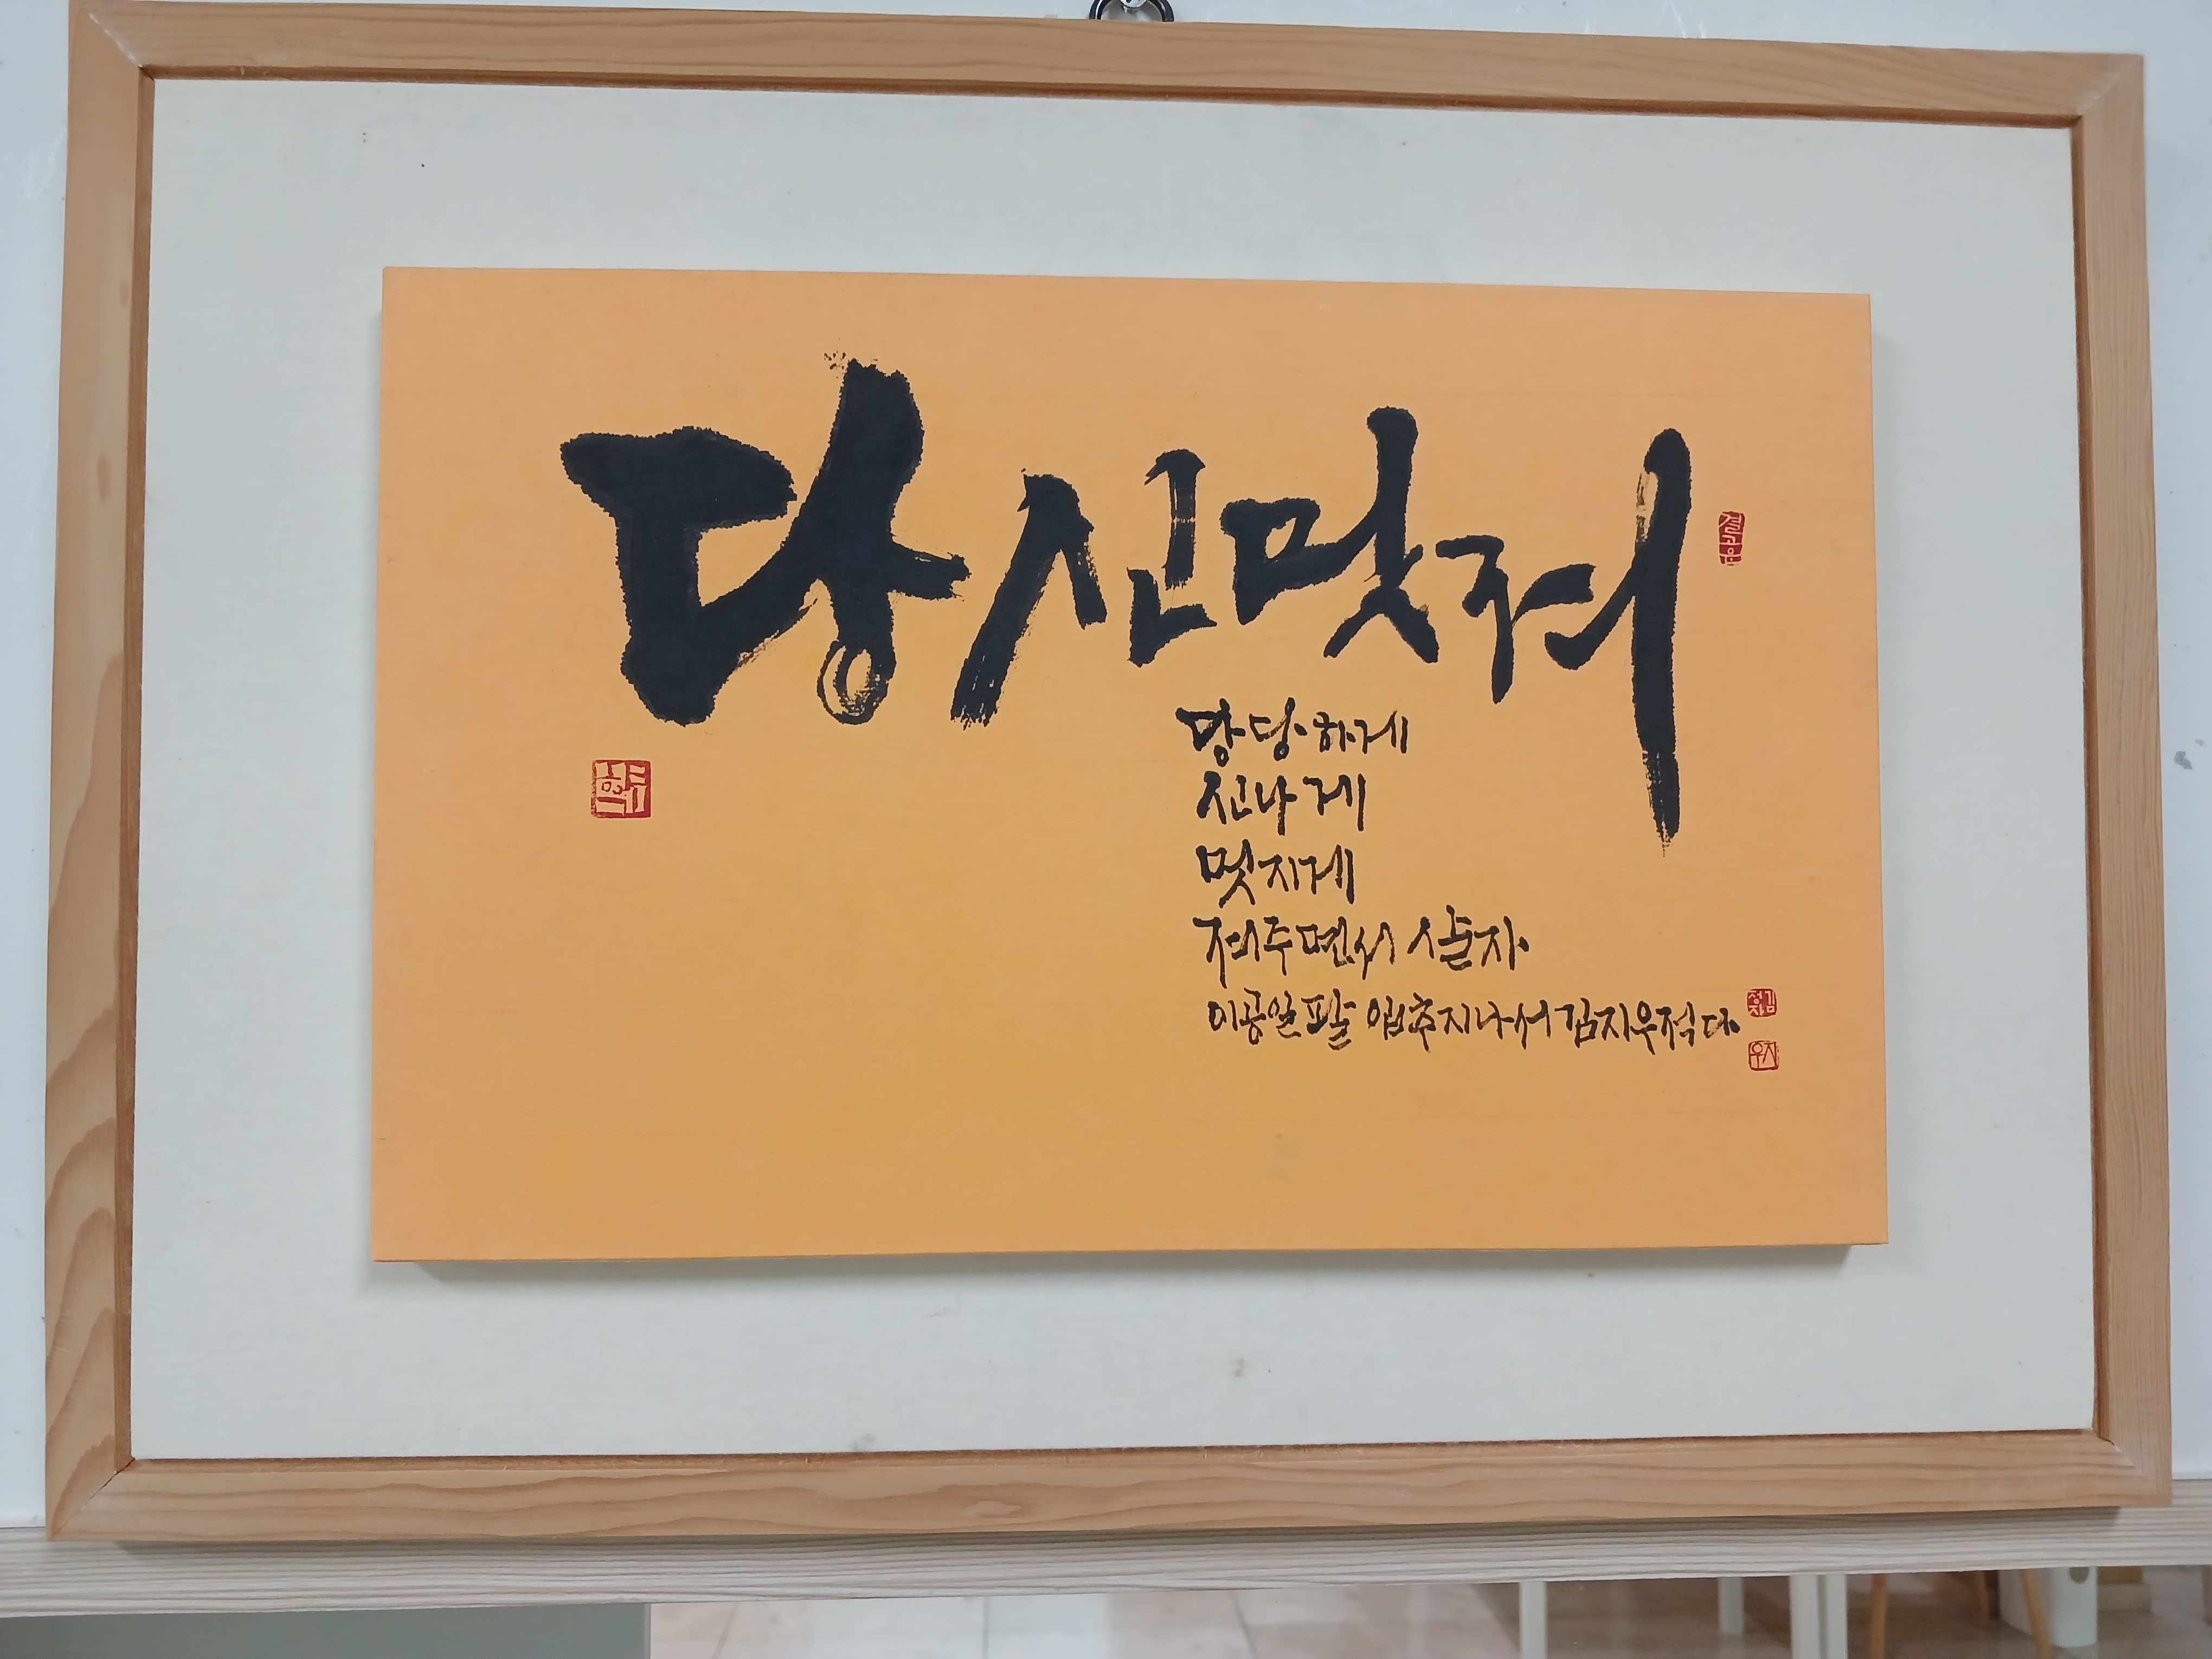 당신멋져
당당하게
신나게
멋지게
져주면서 살자
이공일팔 입추지나서 김지우적다